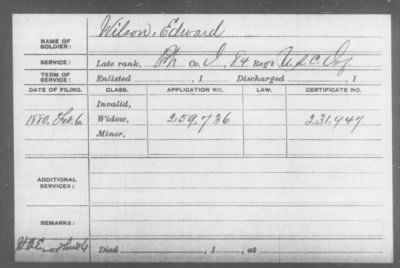 NAME OF SOLDIER: Wilson, Edward
SERVICE: Late rank, Co. I, 84 Reg't U.S.C. Inf
TERM OF SERVICE: Enlisted , 1 Discharged , 1
DATE OF FILING. CLASS. APPLICATION NO. LAW. CERTIFICATE NO.
Invalid,
1880, Feb. 6 Widow, 259,736 231,947
Minor,
ADDITIONAL SERVICES:
REMARKS:
Died , 1 , at